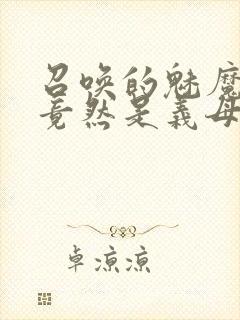 召唤的魅魔
竟然是义母
卓凉凉